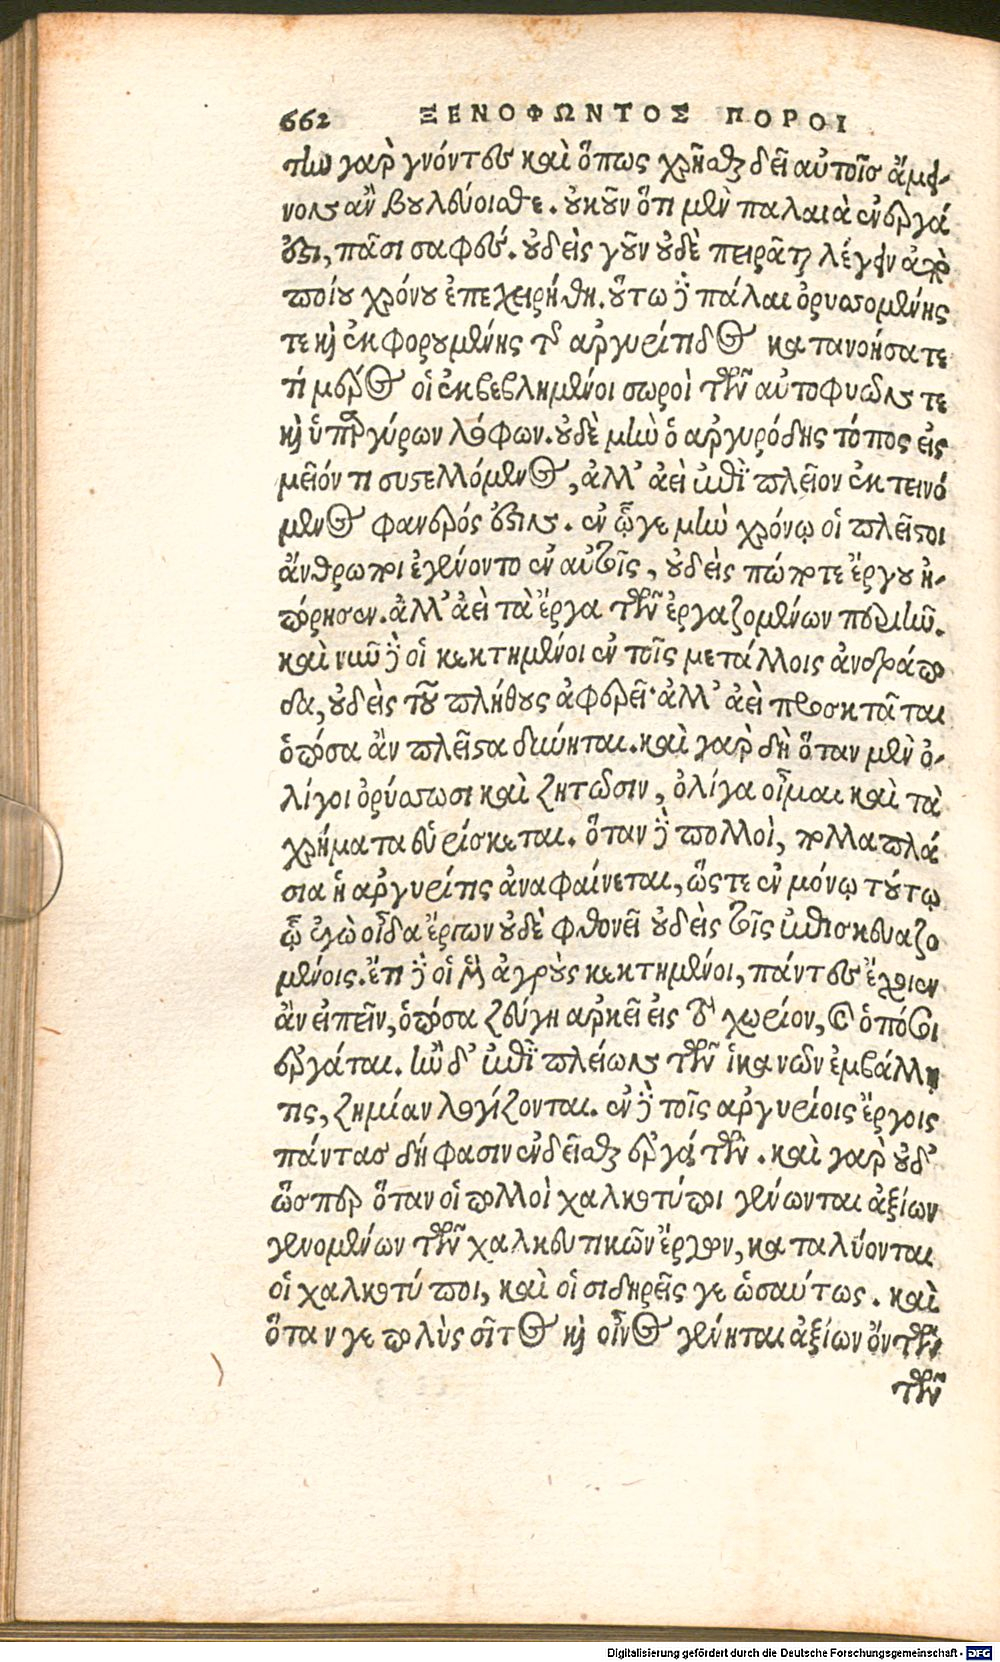 662 ΞΕΝΟΦΩΝΤΟΣ ΠΟΡΟΙ
την γὰρ γνόντες καὶ ὅπως χρῆσθαι δεῖ αὐτοῖς ἄμει-
νον ἂν βουλεύοισθε. οὐκοῦν ὅτι μὲν παλαιὰ ἐνεργά
ἐστι, πᾶσι σαφές. οὐδεὶς γοῦν οὐδὲ πειρᾶται λέγειν ἀπὸ
ποίου χρόνου ἐπεχειρήθη. οὕτω δὲ πάλαι ὀρυσσομένης
τε καὶ ἐκφορουμένης τῆς ἀργυρίτιδος κατανοήσατε
τί μέρος οἱ ἐκβεβλημένοι σωροὶ τῶν αὐτοφυῶν τε
καὶ ὑπαργύρων λόφων. οὐδὲ μὴν ὁ ἀργυρώδης τόπος εἰς
μεῖόν τι συστελλόμενος, ἀλλ' ἀεὶ ἐπὶ πλεῖον ἐκτεινό
μενος φανερός ἐστιν. ἐν ᾧ γε μὴν χρόνῳ οἱ πλεῖστοι
ἄνθρωποι ἐγένοντο ἐν αὐτοῖς, οὐδεὶς πώποτε ἔργου ἠ-
πόρησεν. ἀλλ' ἀεὶ τὰ ἔργα τῶν ἐργαζομένων περιῆν.
καὶ νῦν δὲ οἱ κεκτημένοι ἐν τοῖς μετάλλοις ἀνδράπο
δα, οὐδεὶς τοῦ πλήθους ἀφαιρεῖ· ἀλλ' ἀεὶ προσκτᾶται
ὁπόσα ἂν πλεῖστα δύνηται. καὶ γὰρ δὴ ὅταν μὲν ὀ-
λίγοι ὀρύσσωσι καὶ ζητῶσιν, ὀλίγα οἶμαι καὶ τὰ
χρήματα εὑρίσκεται. ὅταν δὲ πολλοὶ, πολλαπλά
σια ἡ ἀργυρίτις ἀναφαίνεται, ὥστε ἐν μόνῳ τούτῳ
ᾧ ἐγὼ οἶδα ἔργων οὐδὲ φθονεῖ οὐδεὶς τοῖς ἐπισκευαζο
μένοις. ἔτι δὲ οἱ μὲν ἀγροὺς κεκτημένοι, πάντες ἔχοιεν
ἂν εἰπεῖν, ὁπόσα ζεύγη ἀρκεῖ εἰς τὸ χωρίον, καὶ ὁπόσοι
ἐργάται. ἢν δ' ἐπὶ πλείων τῶν ἱκανῶν ἐμβάλλῃ
τις, ζημίαν λογίζονται. ἐν δὲ τοῖς ἀργυρίοις ἔργοις
πάντας δή φασιν ἐνδεῖσθαι ἐργατῶν. καὶ γὰρ οὐδ'
ὥσπερ ὅταν οἱ πολλοὶ χαλκοτύποι γένωνται ἀξίων
γενομένων τῶν χαλκευτικῶν ἔργων, καταλύονται
οἱ χαλκοτύποι, καὶ οἱ σιδηρεῖς γε ὡσαύτως. καὶ
ὅταν γε πολὺς σῖτος καὶ οἶνος γένηται ἀξίων ὄντων
τῶν
Digitalisierung gefördert durch die Deutsche Forschungsgemeinschaft - DFG